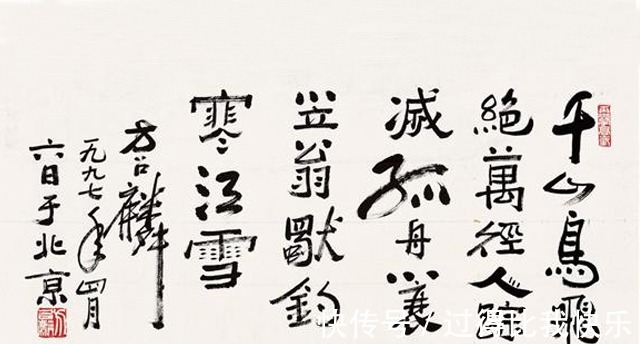 千山鳥飛
絕萬徑人踪
滅孤舟蓑
笠翁獨釣
寒江雪
方召麟
一九九七年四月
六日于北京
快传号/过得比我快乐